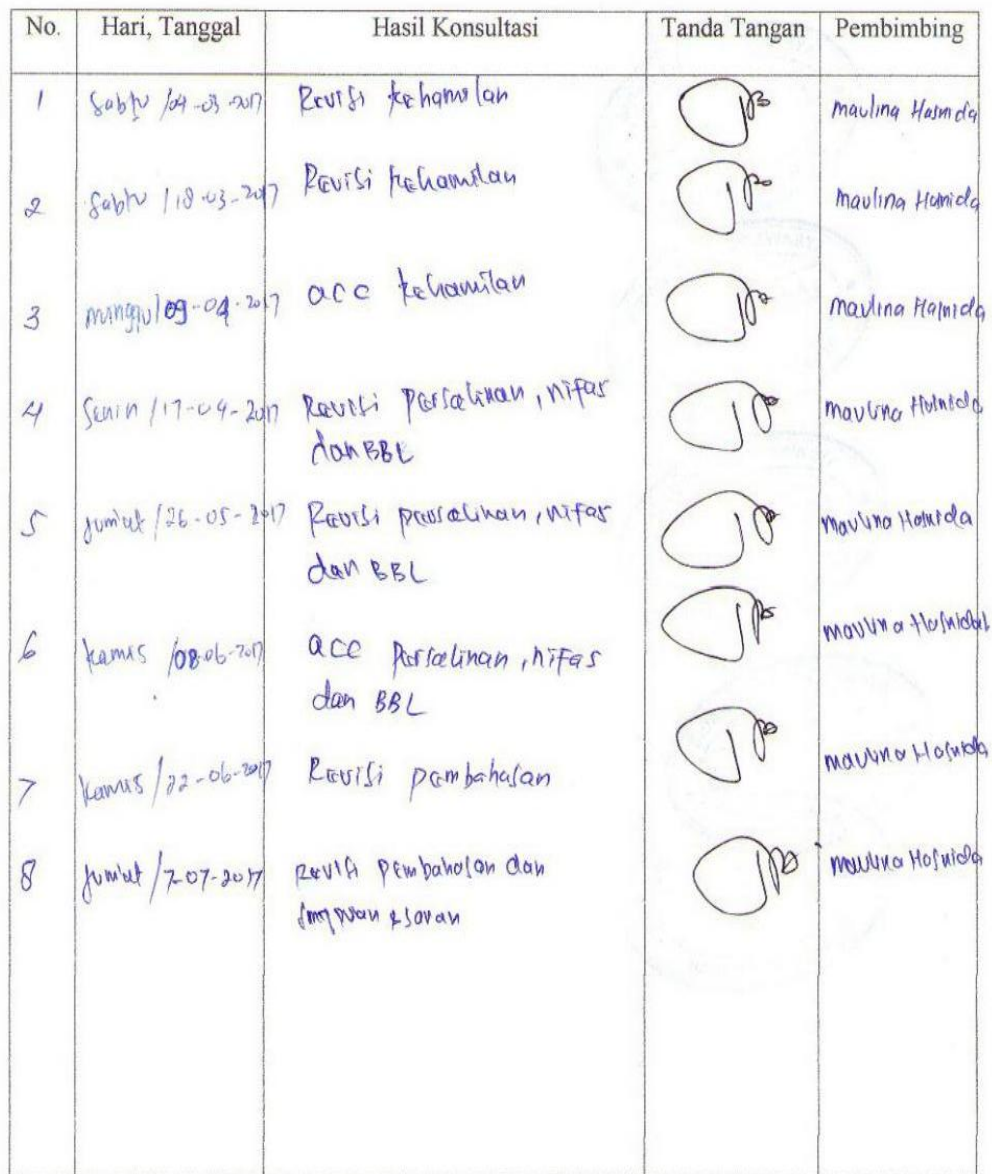 No. Hari, Tanggal Hasil Konsultasi Tanda Tangan Pembimbing
1 Sabtu /04-03-2017 Revisi kehamilan Maulina Hasnida
2 Sabtu /18-03-2017 Revisi kehamilan Maulina Hasnida
3 minggu/09-04-2017 acc kehamilan Maulina Hasnida
4 Senin /17-04-2017 Revisi persalinan, nifas Maulina Hasnida
dan BBL
5 Jum'at /26-05-2017 Revisi persalinan, nifas Maulina Hasnida
dan BBL
6 kamis /08-06-2017 acc Persalinan, nifas Maulina Hasnida
dan BBL
7 Kamis /22-06-2017 Revisi pembahasan Maulina Hasnida
8 Jum'at /7-07-2017 Revisi pembahasan dan Maulina Hasnida
simpulan & saran